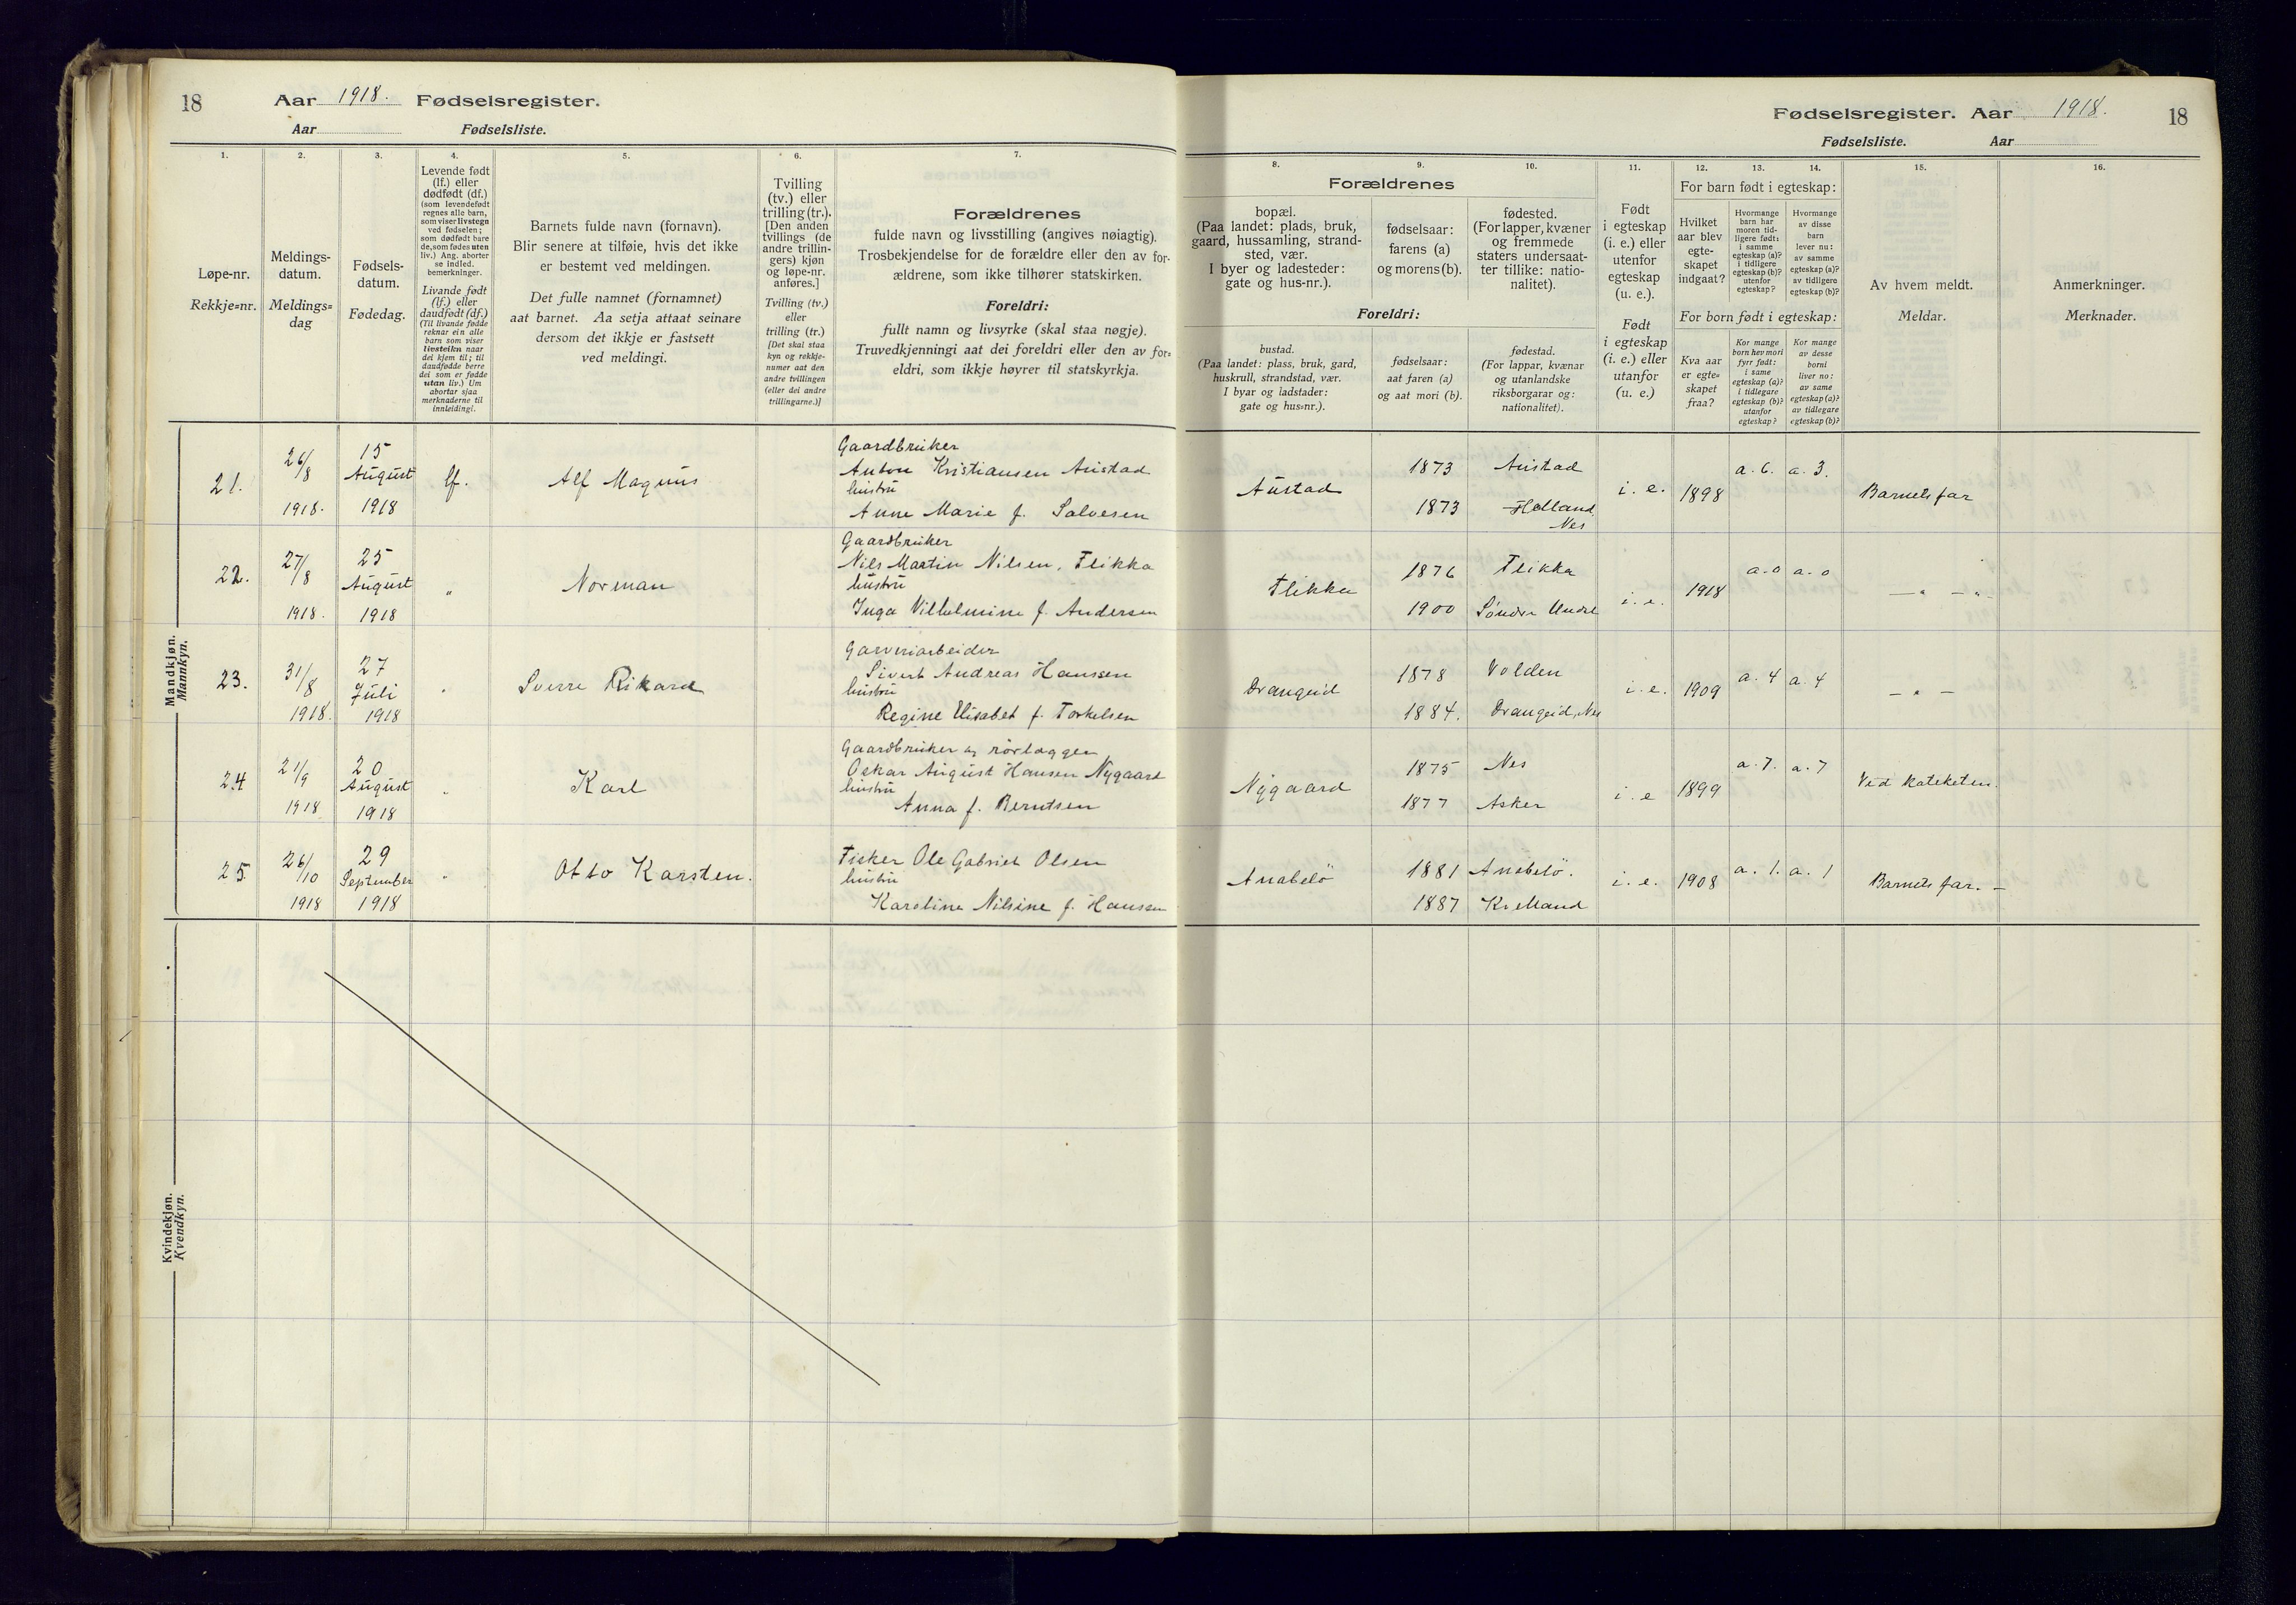 18 Aar 1918. Fødselsregister.
Aar Fødselsliste.
1. 2. 3. 4. 5. 6. 7.
Løpe-nr.
Rekkje=nr.
Meldings-
datum.
Meldings=
dag
Fødsels-
datum.
Fødedag.
Levende født
(lf.) eller
dødfødt (df.)
(som levendefødt
regnes alle barn,
som viser livstegn
ved fødselen;
som dødfødt bare
de, som fødes uten
liv.) Ang. aborter
se indled.
bemerkninger.
Livande født
(lf.) eller
daudfødt (df.)
(Til livande fødde
reknar ein alle
barn som viser
livsteikn naar
dei kjem til; til
daudfødde berre
dei som er fødde
utan liv.) Um
abortar sjaa
merknaderne til
innleidingi.
Barnets fulde navn (fornavn).
Blir senere at tilføie, hvis det ikke
er bestemt ved meldingen.
Det fulle namnet (fornamnet)
aat barnet. Aa setja attaat seinare
dersom det ikkje er fastsett
ved meldingi.
Tvilling
(tv.) eller
trilling (tr.).
[Den anden
tvillings (de
andre trillin-
gers) kjøn
og løpe-nr.
anføres.]
Tvilling (tv.)
eller
trilling (tr.)
[Det skal staa
kyn og rekkje-
numer aat den
andre tvillingen
(eller dei andre
trillingarne.)]
Forældrenes
fulde navn og livsstilling (angives nøiagtig).
Trosbekjendelse for de forældre eller den av for-
ældrene, som ikke tilhører statskirken.
Foreldri:
fullt namn og livsyrke (skal staa nøgje).
Truvedkjenningi aat dei foreldri eller den av for=
eldri, som ikkje høyrer til statskyrkja.
Mandkjøn.
Mannkyn.
21.
26/8
1918.
15
August
1918
lf.
Alf Magnus
Gaardbruker
Anton Kristiansen Austad
hustru
Anne Marie f. Salvesen
22.
27/8
1918.
25
August
1918
"
Norman
Gaardbruker
Nils Martin Nilsen, Flikka
hustru
Inga Vilhelmine f. Andersen
23.
31/8
1918.
27
Juli
1918
"
Sverre Rikard
Garveriarbeider
Sivert Andreas Hanssen
hustru
Regine Elisabet f. Torkelsen
24
21/9
1918
20
August
1918
"
Karl
Gaardbruker og rørlægger
Oskar August Hansen Nygaard
hustru
Anna f. Berntsen
25.
26/10
1918
29
September
1918
"
Otto Karsten.
Fisker Ole Gabriel Olsen
hustru
Karoline Nilsine f. Hansen
Kvindekjøn.
Kvendkyn.
Fødselsregister. Aar 1918. 18
Fødselsliste. Aar
8. 9. 10. 11. 12. 13. 14. 15. 16.
Forældrenes
bopæl.
(Paa landet: plads, bruk,
gaard, hussamling, strand-
sted, vær.
I byer og ladesteder:
gate og hus-nr.).
fødselsaar:
farens (a)
og morens (b).
fødested.
(For lapper, kvæner
og fremmede
staters undersaat-
ter tillike: natio-
nalitet).
Foreldri:
bustad.
(Paa landet: plass, bruk, gard,
huskrull, strandstad, vær.
I byar og ladstader:
gate og hus=nr.).
fødselsaar:
aat faren (a)
og aat mori (b).
fødestad.
(For lappar, kvænar
og utanlandske
riksborgarar og:
nationalitet).
Født
i egteskap
(i. e.) eller
utenfor
egteskap
(u. e.).
Født
i egteskap
(i. e.) eller
utanfor
(u. e.)
For barn født i egteskap:
Hvilket
aar blev
egte-
skapet
indgaat?
Hvormange
barn har
moren tid-
ligere født:
i samme
egteskap (a)?
i tidligere
egteskap (b)?
utenfor
egteskap?
Hvormange
av disse
barn
lever nu:
av samme
egteskap (a)?
av tidligere
egteskap (b)?
For born født i egteskap:
Kva aar
er egte=
skapet
fraa?
Kor mange
born hev mori
fyrr født:
i same
egteskap (a)?
i tidlegare
egteskap (b)?
utanfor
egteskap?
Kor mange
av desse
borni
liver no:
av same
egteskap (a)?
av tidlegare
egteskap (b)?
Av hvem meldt.
Meldar.
Anmerkninger.
Merknader.
Austad
1873 Austad
1873 Helland, Nes
i. e. 1898 a. 6. a. 3.
Barnets far
Flikka
1876 Flikka
1900 Søndre Undal
i. e. 1918 a. 0 a. 0
— " — " —
Drangeid
1878 Volden
1884. Drangeid, Nes
i. e. 1909 a. 4 a. 4
— " —
Nygaard
1875 Nes
1877 Asker
i. e 1899 a. 7. a. 7
Ved kateketen.
Anabelø
1881 Anabelø.
1887 Kvelland
i. e. 1908 a. 1. a. 1
Barnets far. —